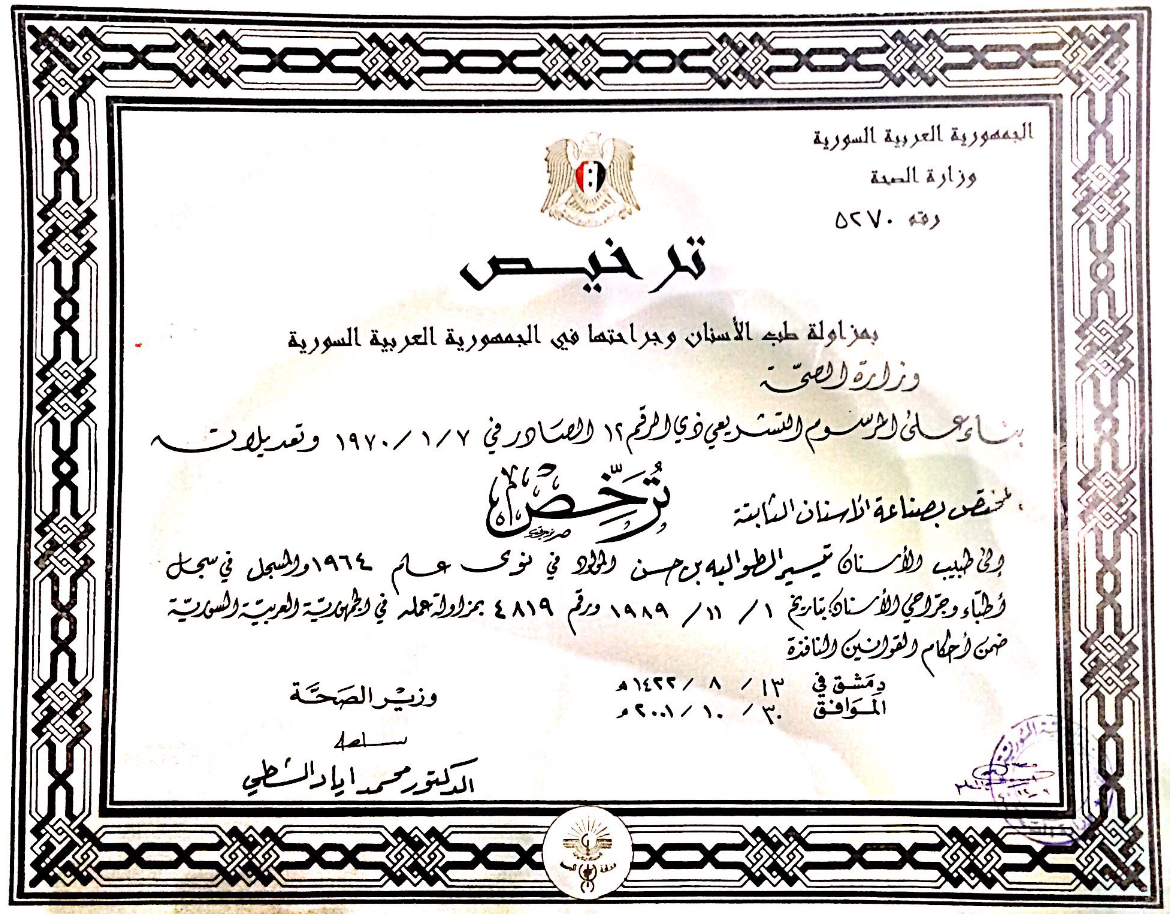 الجمهورية العربية السورية
وزارة الصحة
رقم ٥٢٧٠
ترخيص
بمزاولة طب الأسنان وجراحتها في الجمهورية العربية السورية
وزارة الصحّة
بناء على المرسوم التشريعي ذي الرقم ١٢ الصادر في ١٩٧٠/١/٧ وتعديلاته
تُرَخِّص
مختص بصناعة الأسنان الثابتة
إلى طبيب الأسنان تيسير الطوالبه بن حسن المولود في نوى عام ١٩٦٤ والمسجل في سجل
أطبّاء وجرّاحي الأسنان بتاريخ ١ / ١١ / ١٩٨٩ ورقم ٤٨١٩ بمزاولة عمله في الجمهوريّة العربيّة السوريّة
ضمن أحكام القوانين النافذة
دمشق في ١٣ / ٨ / ١٤٢٢ هـ
المَوافق ٣٠ / ١٠ / ٢٠٠١ م
وزير الصَحَّة
الدكتور محمد اياد الشطي